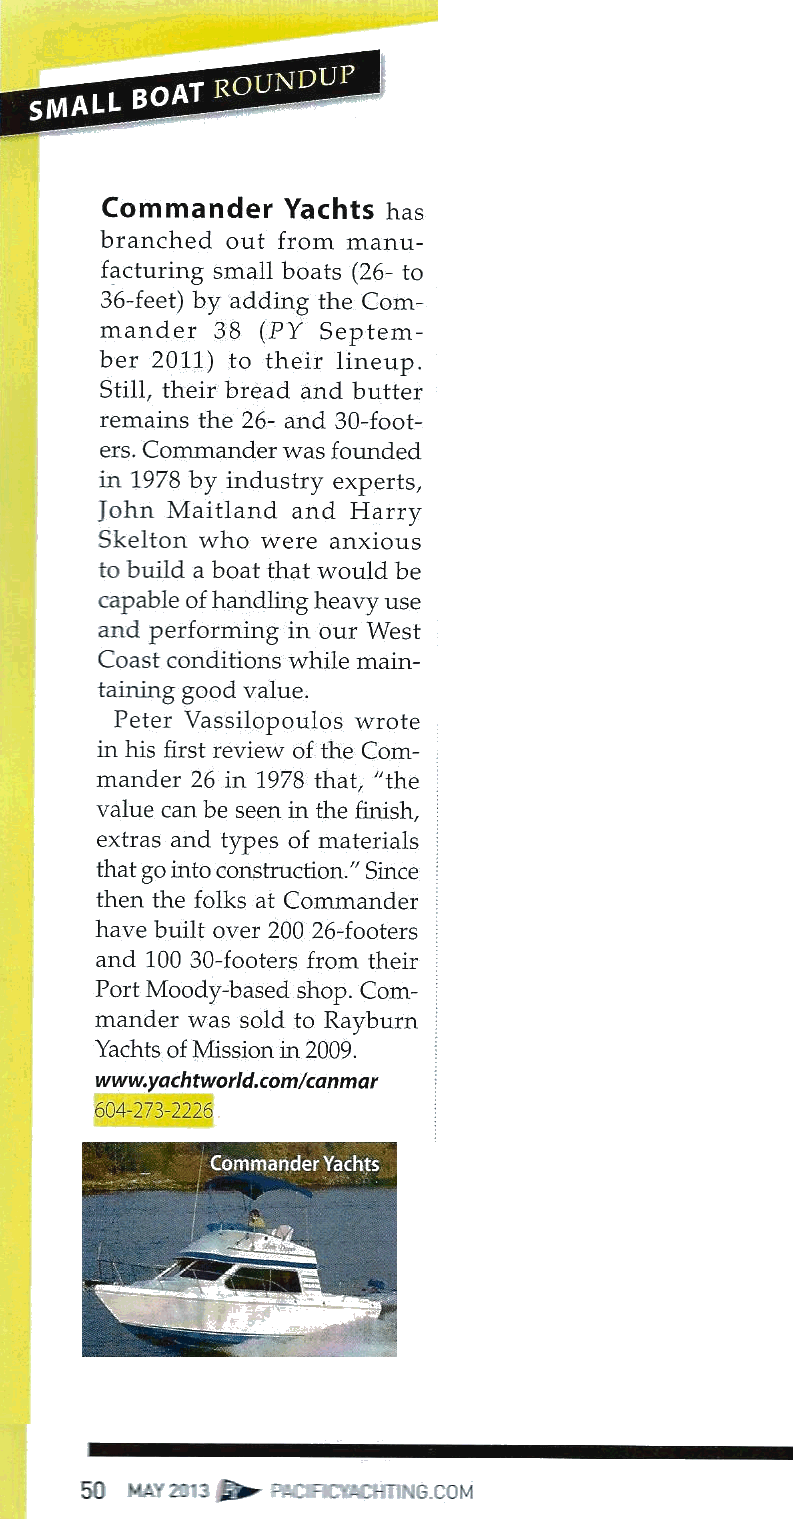 SMALL BOAT ROUNDUP
Commander Yachts has
branched out from manu-
facturing small boats (26- to
36-feet) by adding the Com-
mander 38 (PY Septem-
ber 2011) to their lineup.
Still, their bread and butter
remains the 26- and 30-foot-
ers. Commander was founded
in 1978 by industry experts,
John Maitland and Harry
Skelton who were anxious
to build a boat that would be
capable of handling heavy use
and performing in our West
Coast conditions while main-
taining good value.
Peter Vassilopoulos wrote
in his first review of the Com-
mander 26 in 1978 that, "the
value can be seen in the finish,
extras and types of materials
that go into construction." Since
then the folks at Commander
have built over 200 26-footers
and 100 30-footers from their
Port Moody-based shop. Com-
mander was sold to Rayburn
Yachts of Mission in 2009.
www.yachtworld.com/canmar
604-273-2226
Commander Yachts
50 MAY 2013 PACIFICYACHTING.COM